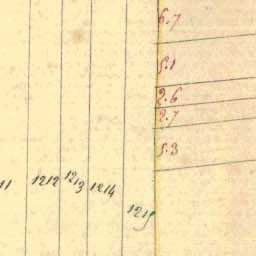 6.7
5.1
2.6
2.7
5.3
11 1212 1213 1214 1215